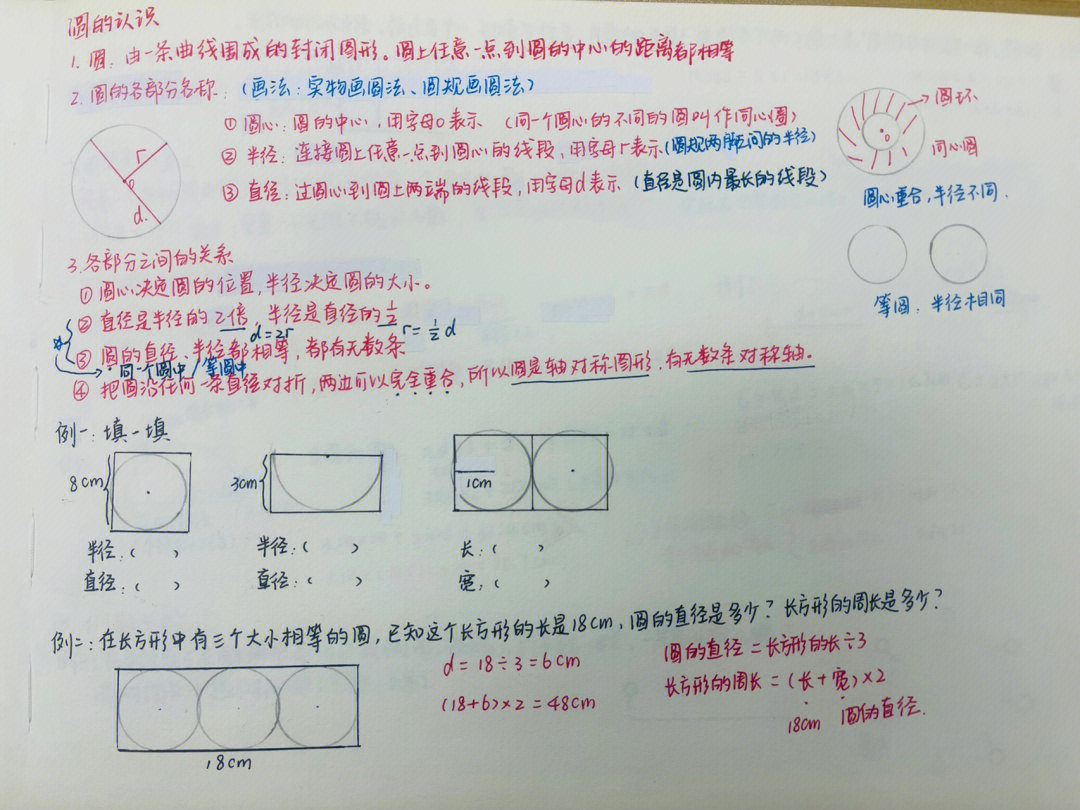 圆的认识
1. 圆：由一条曲线围成的封闭图形。圆上任意一点到圆的中心的距离都相等
2. 圆的各部分名称：(画法：实物画圆法、圆规画圆法)
① 圆心：圆的中心，用字母o表示 (同一个圆心的不同的圆叫作同心圆)
② 半径：连接圆上任意一点到圆心的线段，用字母r表示(圆规两脚之间的半径)
③ 直径：过圆心到圆上两端的线段，用字母d表示 (直径是圆内最长的线段)
r
o
d.
o
圆环
同心圆
圆心重合，半径不同.
等圆：半径相同
3.各部分之间的关系
① 圆心决定圆的位置，半径决定圆的大小。
② 直径是半径的2倍，半径是直径的1/2
d=2r r=1/2 d
③ 圆的直径、半径都相等，都有无数条
同一个圆中/等圆中
④ 把圆沿任何一条直径对折，两边可以完全重合，所以圆是轴对称图形，有无数条对称轴。
例一：填一填
8cm
3cm
1cm
半径：( ) 半径：( ) 长：( )
直径：( ) 直径：( ) 宽：( )
例二：在长方形中有三个大小相等的圆，已知这个长方形的长是18cm，圆的直径是多少？长方形的周长是多少？
18cm
d=18÷3=6cm
(18+6)×2=48cm
圆的直径=长方形的长÷3
长方形的周长=(长+宽)×2
18cm 圆的直径.